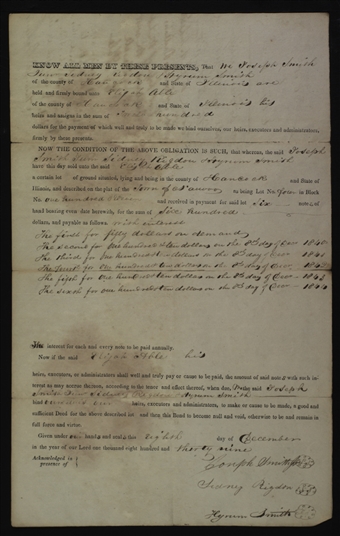 KNOW ALL MEN BY THESE PRESENTS, That We Joseph Smith
Sidney Rigdon Hyrum Smith
of the county of Hancock and State of Illinois are
held and firmly bound unto Elijah Able
of the county of Hancock and State of Illinois his
heirs and assigns in the sum of hundred
dollars for the payment of which well and truly to be made we bind ourselves, our heirs, executors and administrators,
firmly by these presents.
NOW THE CONDITION OF THE ABOVE OBLIGATION IS SUCH, that whereas, the said Joseph
Smith Sidney Rigdon Hyrum Smith
have this day sold unto the said Elijah Able
a certain lot of ground situated, lying and being in the county of Hancock and State of
Illinois, and described on the plat of the Town of Nauvoo to being Lot No. Four in Block
No. one hundred and received in payment for said lot Six notes of
hand bearing even date herewith, for the sum of Six hundred
dollars, and payable as follows with interest
The first for fifty dollars on demand
The second for one hundred & ten dollars on the day of 1840
The third for one hundred & ten dollars on the day of 1841
The for one hundred & ten dollars on the day of 1842
The fifth for one hundred & ten dollars on the day of 1843
The sixth for one hundred & ten dollars on the day of 1844
The interest for each and every note to be paid annually.
Now if the said Elijah Able his
heirs, executors, or administrators shall well and truly pay or cause to be paid, the amount of said notes with such interest
as may accrue thereon, according to the tenor and effect thereof, when due, the said Joseph
Smith Sidney Rigdon Hyrum Smith
bind heirs, executors and administrators, to make or cause to be made, a good and
sufficient Deed for the above described lot and then this Bond to become null and void, otherwise to be and remain in
full force and virtue.
Given under our hands and seals this eighth day of December
in the year of our Lord one thousand eight hundred and thirty nine
Acknowledged in
presence of
Joseph Smith
Sidney Rigdon
Hyrum Smith